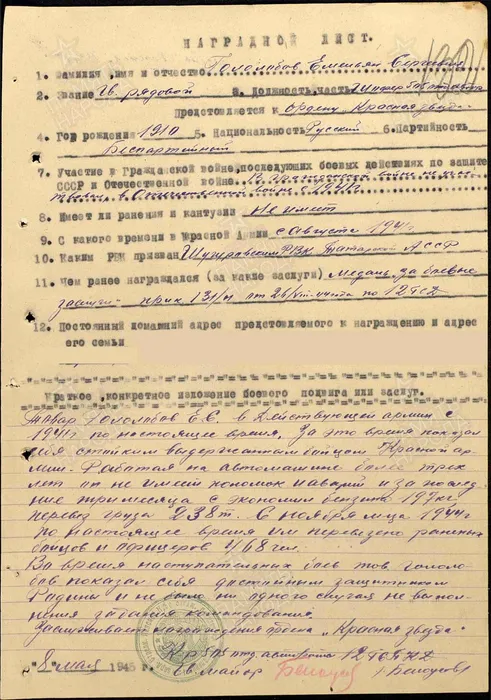 НАГРАДНОЙ ЛИСТ.
1. Фамилия ,имя и отчество Гололобов Емельян Сергеевич
2. Звание Гв. рядовой 3. Должность,часть Шофер
Представляется к Ордену „Красная звезда"
4. Год рождения 1910 5. Национальность Русский 6. Партийность
Беспартийный
7. Участие в Гражданской войне,последующих боевых действиях по защите
СССР и Отечественной войне. В Гражданской войне не участвовал, в Отечественной войне с 1941г
8. Имеет ли ранения и контузии Не имеет
9. С какого времени в Красной Армии с Августа 1941г
10. Каким РВК призван РВК Татарской АССР
11. Чем ранее награждался (за какие заслуги) Медаль „За боевые
заслуги" - приказ 13/н от 26/ по 12 ГСД
12. Постоянный домашний адрес представляемого к награждению и адрес
его семьи
Краткое ,конкретное изложение боевого подвига или заслуг.
Товар Гололобов Е.С. в Действующей армии с
1941г по настоящее время. За это время показал
себя стойким выдержанным бойцом Красной ар-
мии. Работая на автомашине более трех
лет он не имел поломок и аварий и за послед-
ние три месяца с экономил бензина 192кг
перевез груза 238т. С ноября м-ца 1944г
по настоящее время им перевезено раненых
бойцов и офицеров 468 чел.
Во время наступательных боев тов Гололо-
бов показал себя достойным защитником
Родины и не было ни одного случая не выпол-
нения задания командования.
Заслуживает награждения ордена „Красная звезда"
К-р отд. 12
"8" мая 1945 г. Гв. майор